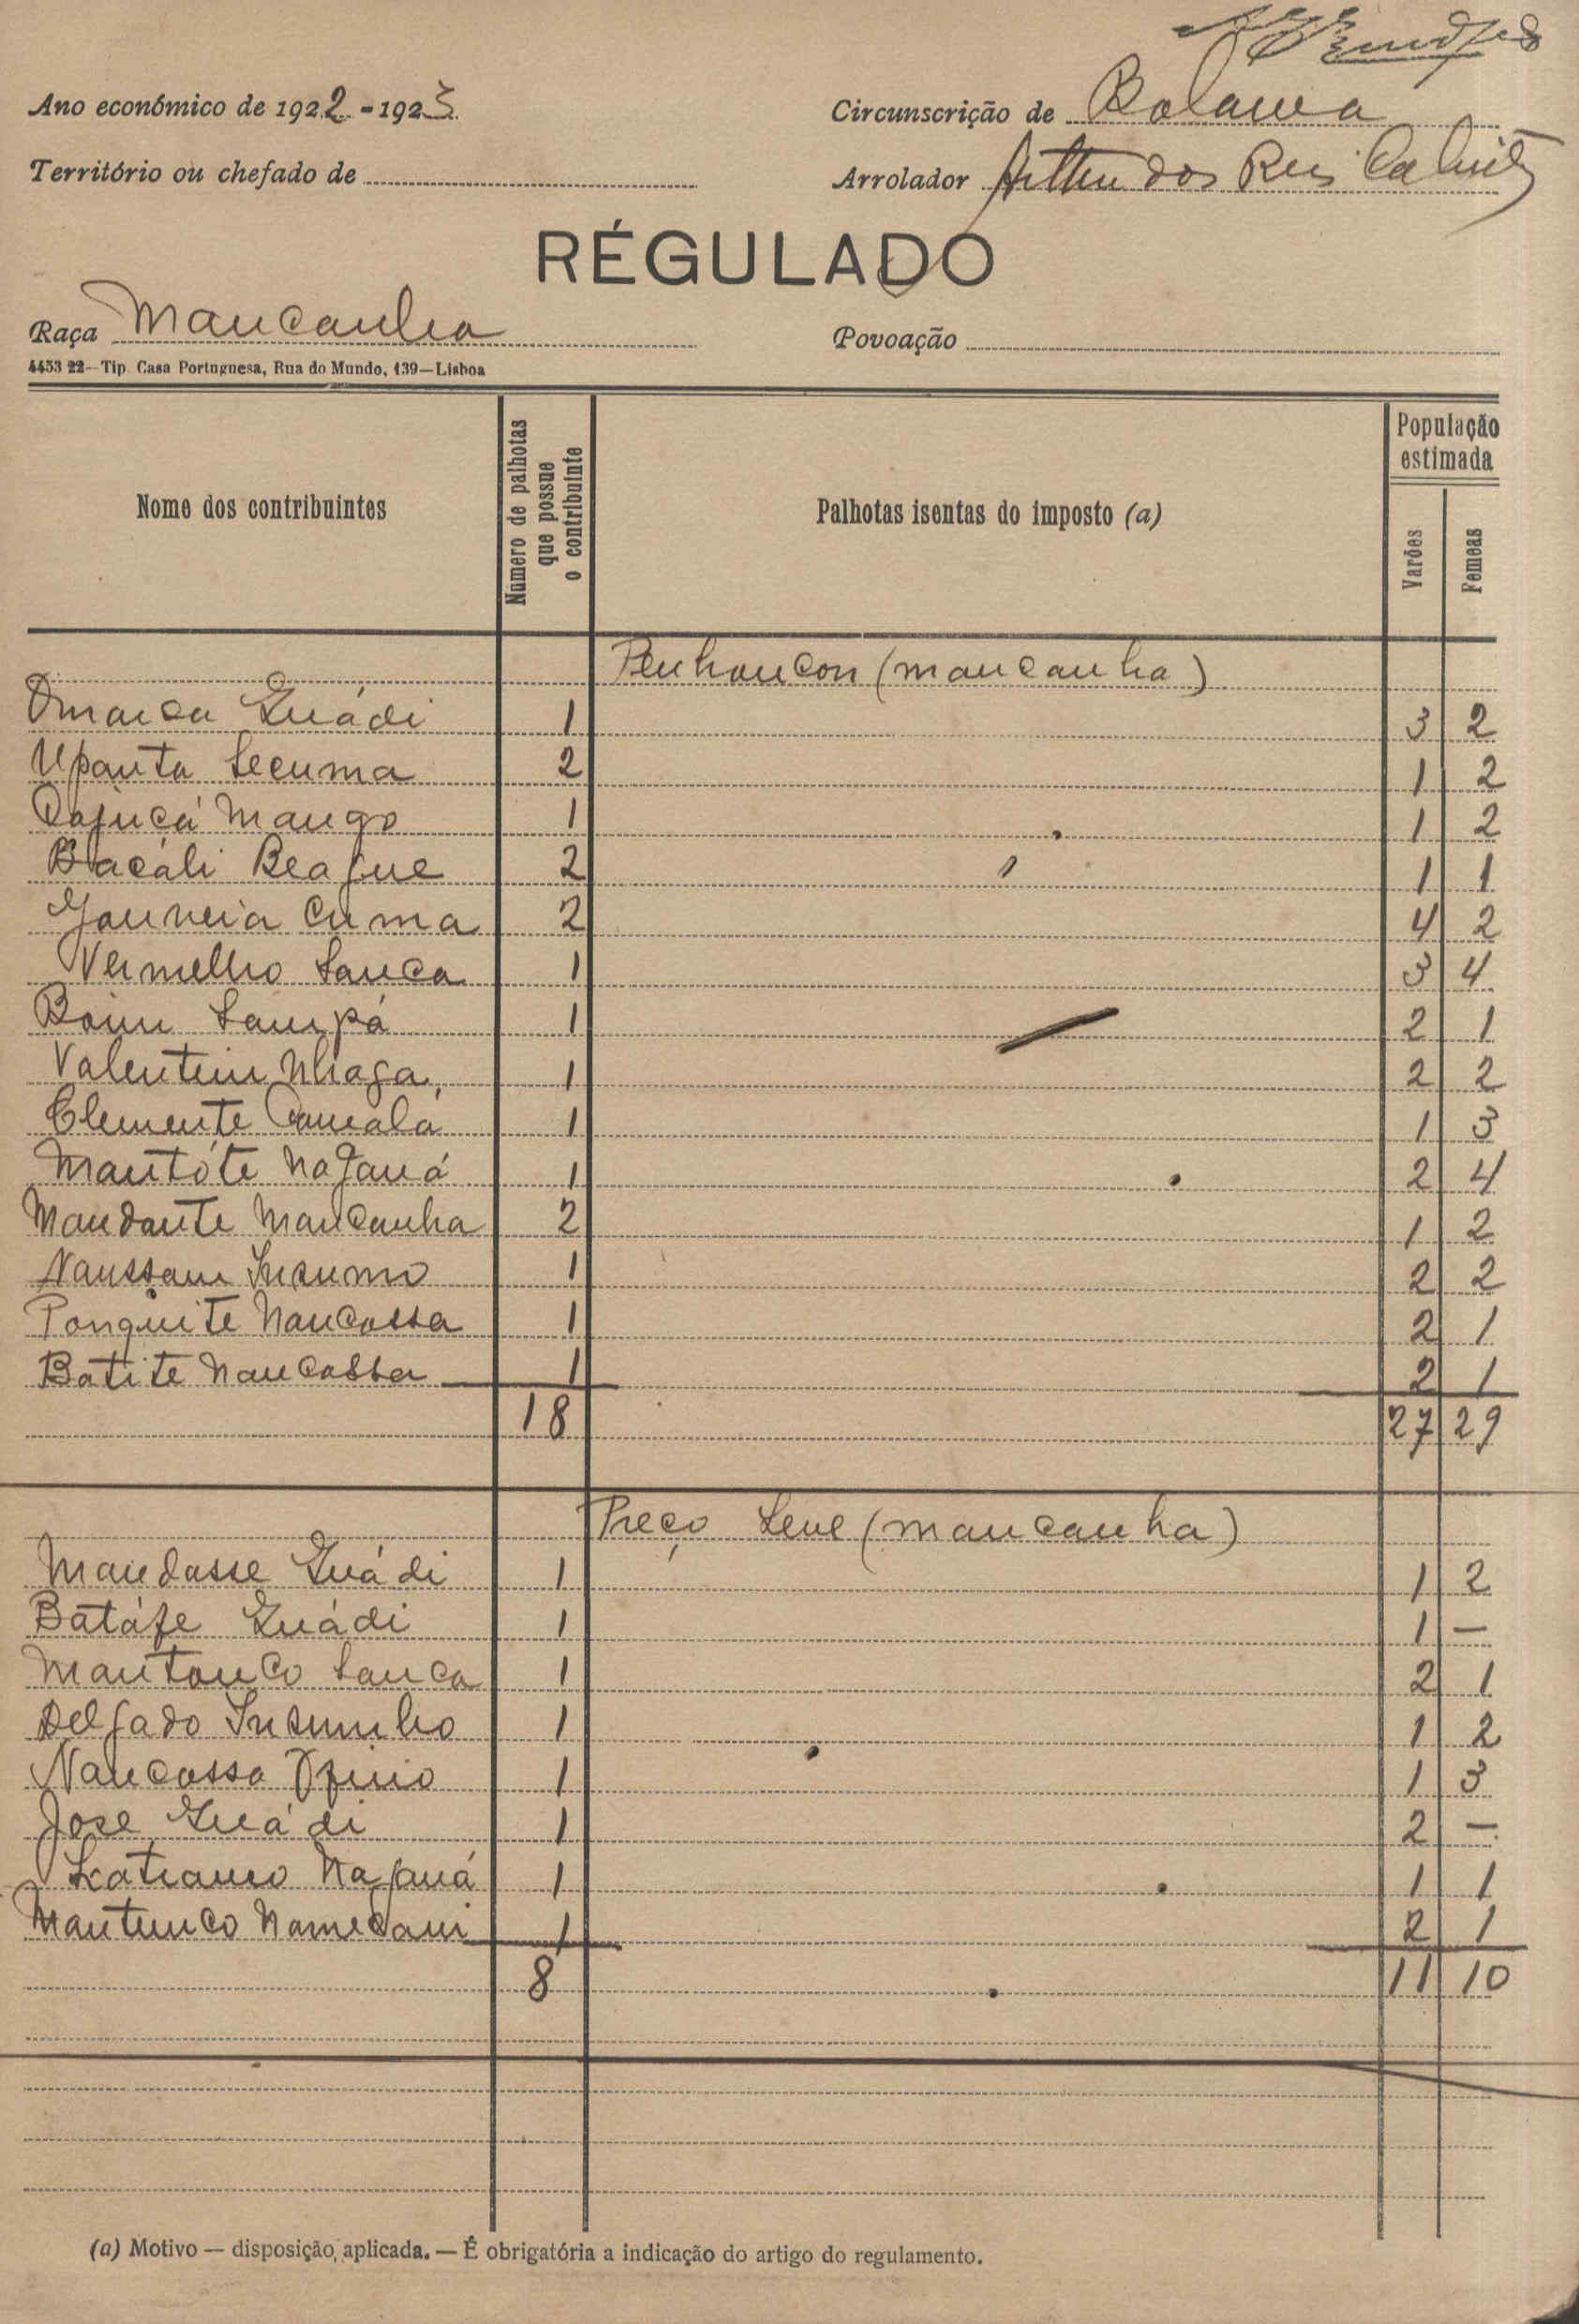 Ano económico de 1922 - 1923
Circunscrição de Bolama
Território ou chefado de
Arrolador dos Reis
RÉGULADO
Raça Mancanha
Povoação
4453 22—Tip. Casa Portuguesa, Rua do Mundo, 139—Lisboa
Nome dos contribuintes
Número de palhotas que possue o contribuinte
Palhotas isentas do imposto (a)
População estimada
Varões
Femeas
(mancanha)
Guádi 1 3 2
Upanta Secuma 2 1 2
Cajucá Mango 1 1 2
Bacáli Beague 2 1 1
Cuma 2 4 2
Vermelho Sanca 1 3 4
Sampá 1 2 1
Valentim Nhaga 1 2 2
Clemente 1 1 3
Mantóte Naganá 1 2 4
Mandante Mancanha 2 1 2
Naussam Insumo 1 2 2
Ponquite Nancassa 1 2 1
Batite Nancassa 1 2 1
18 27 29
Preço Leve (mancanha)
Mandasse Guádi 1 1 2
Batáfe Guádi 1 1 —
Mantanco Sanca 1 2 1
Delgado Insumbo 1 1 2
Nancassa 1 1 3
José Guádi 1 2 —
Naganá 1 1 1
Mantunco 1 2 1
8 11 10
(a) Motivo — disposição aplicada. — É obrigatória a indicação do artigo do regulamento.